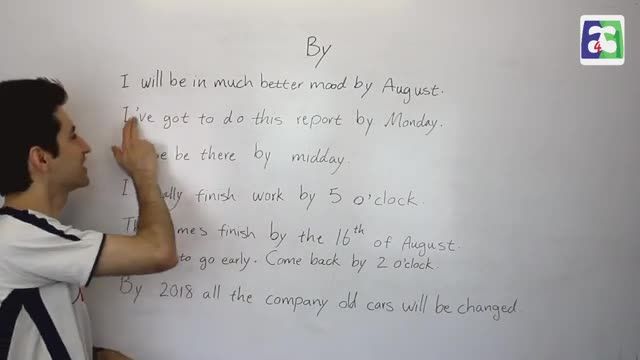 By
I will be in much better mood by August.
I've got to do this report by Monday.
be there by midday.
I finish work by 5 o'clock.
finish by the 16th of August.
to go early. Come back by 2 o'clock.
By 2018 all the company old cars will be changed
4